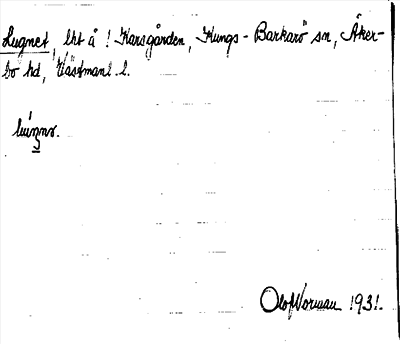 Lugnet, lht å ! Karsgården, Kungs-Barkarö sn, Åker-
bo hd, Västmanl. l.
Olof Norman 1931.